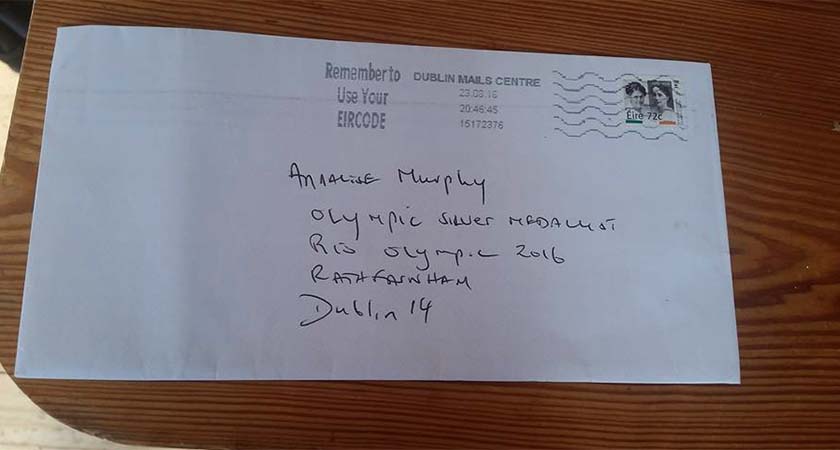 Remember to
Use Your
EIRCODE
DUBLIN MAILS CENTRE
23.08.16
20:46:45
15172376
Éire 72c
Annalise Murphy
Olympic Silver Medalist
Rio Olympic 2016
Rathfarnham
Dublin 14